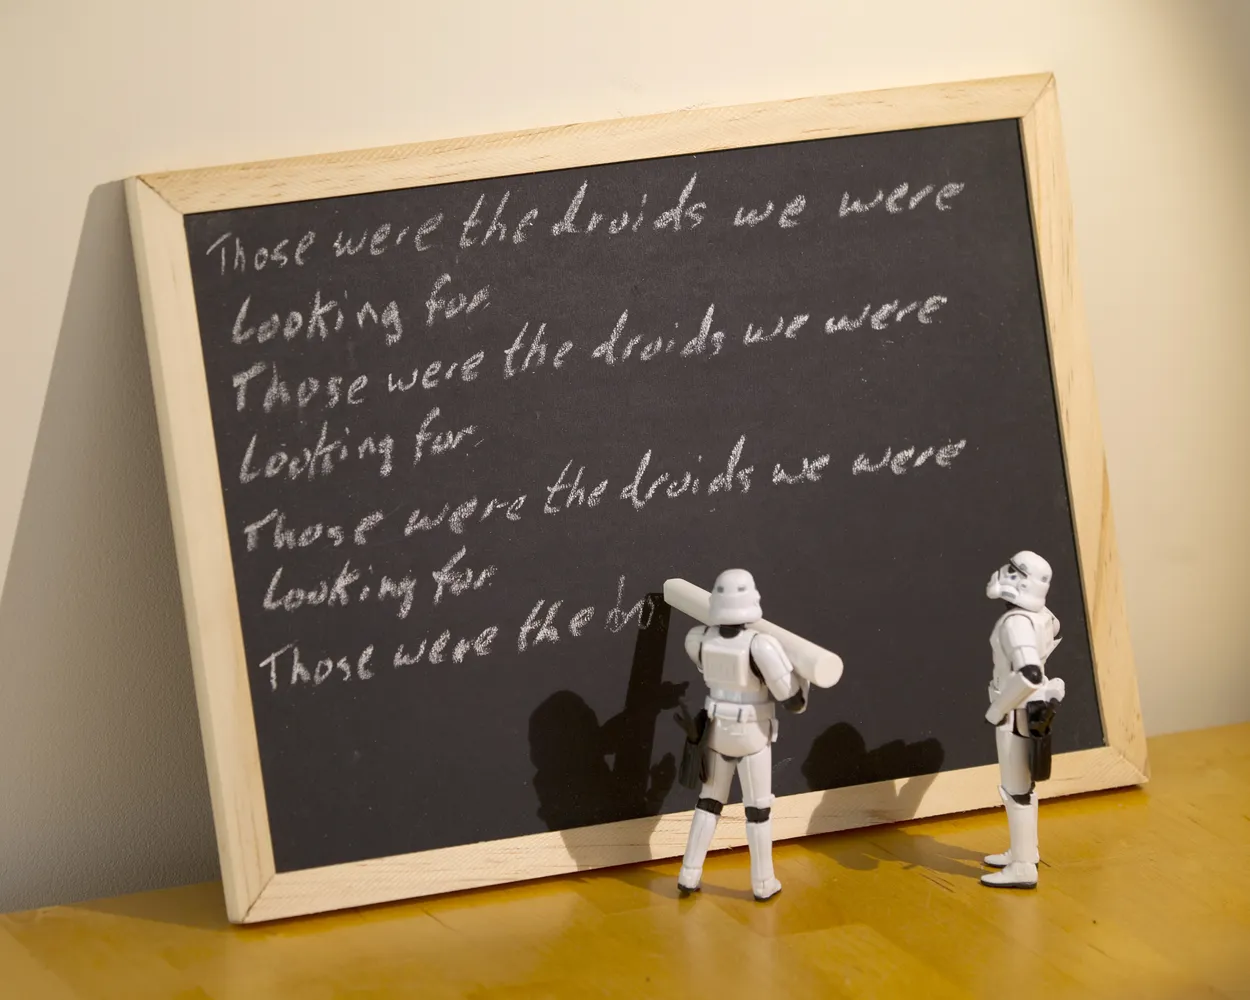 Those were the droids we were
Looking for
Those were the droids we were
Looking for
Those were the droids we were
Looking for
Those were the dro